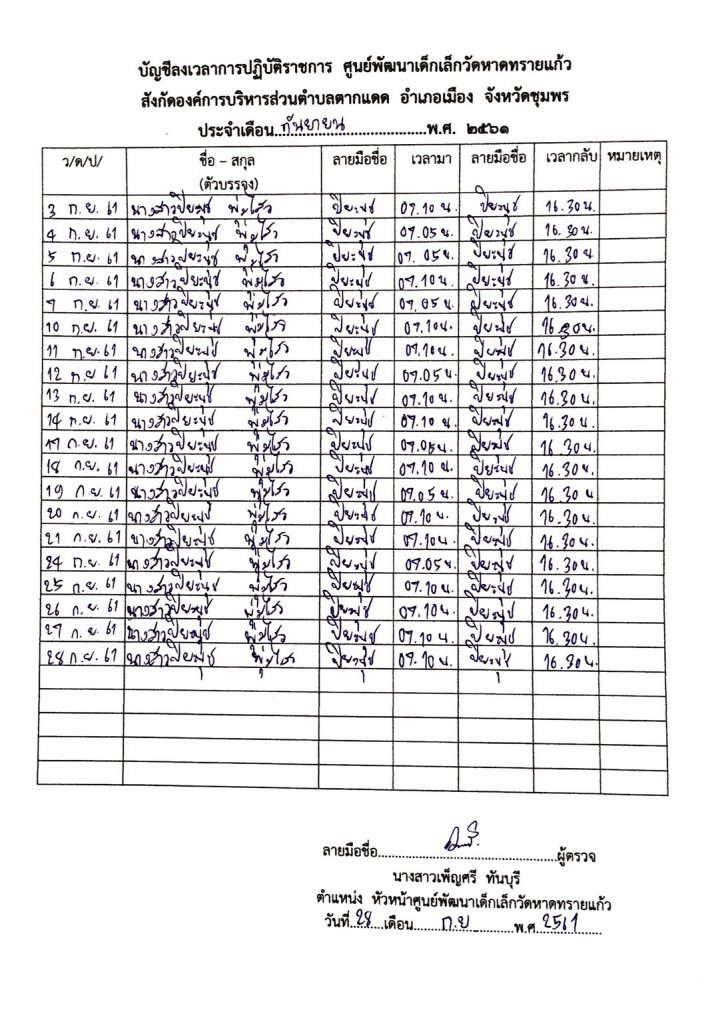 บัญชีลงเวลาการปฏิบัติราชการ ศูนย์พัฒนาเด็กเล็กวัดหาดทรายแก้ว
สังกัดองค์การบริหารส่วนตำบลตากแดด อำเภอเมือง จังหวัดชุมพร
ประจำเดือน กันยายน พ.ศ. ๒๕๖๑
ว/ด/ป/ ชื่อ - สกุล (ตัวบรรจง) ลายมือชื่อ เวลามา ลายมือชื่อ เวลากลับ หมายเหตุ
3 ก.ย. 61 นางสาวปิยะนุช ปิยะนุช 07.10 น. ปิยะนุช 16.30 น.
4 ก.ย. 61 นางสาวปิยะนุช ปิยะนุช 07.05 น. ปิยะนุช 16.30 น.
5 ก.ย. 61 นางสาวปิยะนุช ปิยะนุช 07.05 น. ปิยะนุช 16.30 น.
6 ก.ย. 61 นางสาวปิยะนุช ปิยะนุช 07.10 น. ปิยะนุช 16.30 น.
7 ก.ย. 61 นางสาวปิยะนุช ปิยะนุช 07.05 น. ปิยะนุช 16.30 น.
10 ก.ย. 61 นางสาวปิยะนุช ปิยะนุช 07.10 น. ปิยะนุช 16.30 น.
11 ก.ย. 61 นางสาวปิยะนุช ปิยะนุช 07.10 น. ปิยะนุช 16.30 น.
12 ก.ย. 61 นางสาวปิยะนุช ปิยะนุช 07.05 น. ปิยะนุช 16.30 น.
13 ก.ย. 61 นางสาวปิยะนุช ปิยะนุช 07.10 น. ปิยะนุช 16.30 น.
14 ก.ย. 61 นางสาวปิยะนุช ปิยะนุช 07.10 น. ปิยะนุช 16.30 น.
17 ก.ย. 61 นางสาวปิยะนุช ปิยะนุช 07.05 น. ปิยะนุช 16.30 น.
18 ก.ย. 61 นางสาวปิยะนุช ปิยะนุช 07.10 น. ปิยะนุช 16.30 น.
19 ก.ย. 61 นางสาวปิยะนุช ปิยะนุช 07.05 น. ปิยะนุช 16.30 น.
20 ก.ย. 61 นางสาวปิยะนุช ปิยะนุช 07.10 น. ปิยะนุช 16.30 น.
21 ก.ย. 61 นางสาวปิยะนุช ปิยะนุช 07.10 น. ปิยะนุช 16.30 น.
24 ก.ย. 61 นางสาวปิยะนุช ปิยะนุช 07.05 น. ปิยะนุช 16.30 น.
25 ก.ย. 61 นางสาวปิยะนุช ปิยะนุช 07.10 น. ปิยะนุช 16.30 น.
26 ก.ย. 61 นางสาวปิยะนุช ปิยะนุช 07.10 น. ปิยะนุช 16.30 น.
27 ก.ย. 61 นางสาวปิยะนุช ปิยะนุช 07.10 น. ปิยะนุช 16.30 น.
28 ก.ย. 61 นางสาวปิยะนุช ปิยะนุช 07.10 น. ปิยะนุช 16.30 น.
ลายมือชื่อ ผู้ตรวจ
นางสาวเพ็ญศรี ทันบุรี
ตำแหน่ง หัวหน้าศูนย์พัฒนาเด็กเล็กวัดหาดทรายแก้ว
วันที่ 28 เดือน ก.ย พ.ศ. 2561